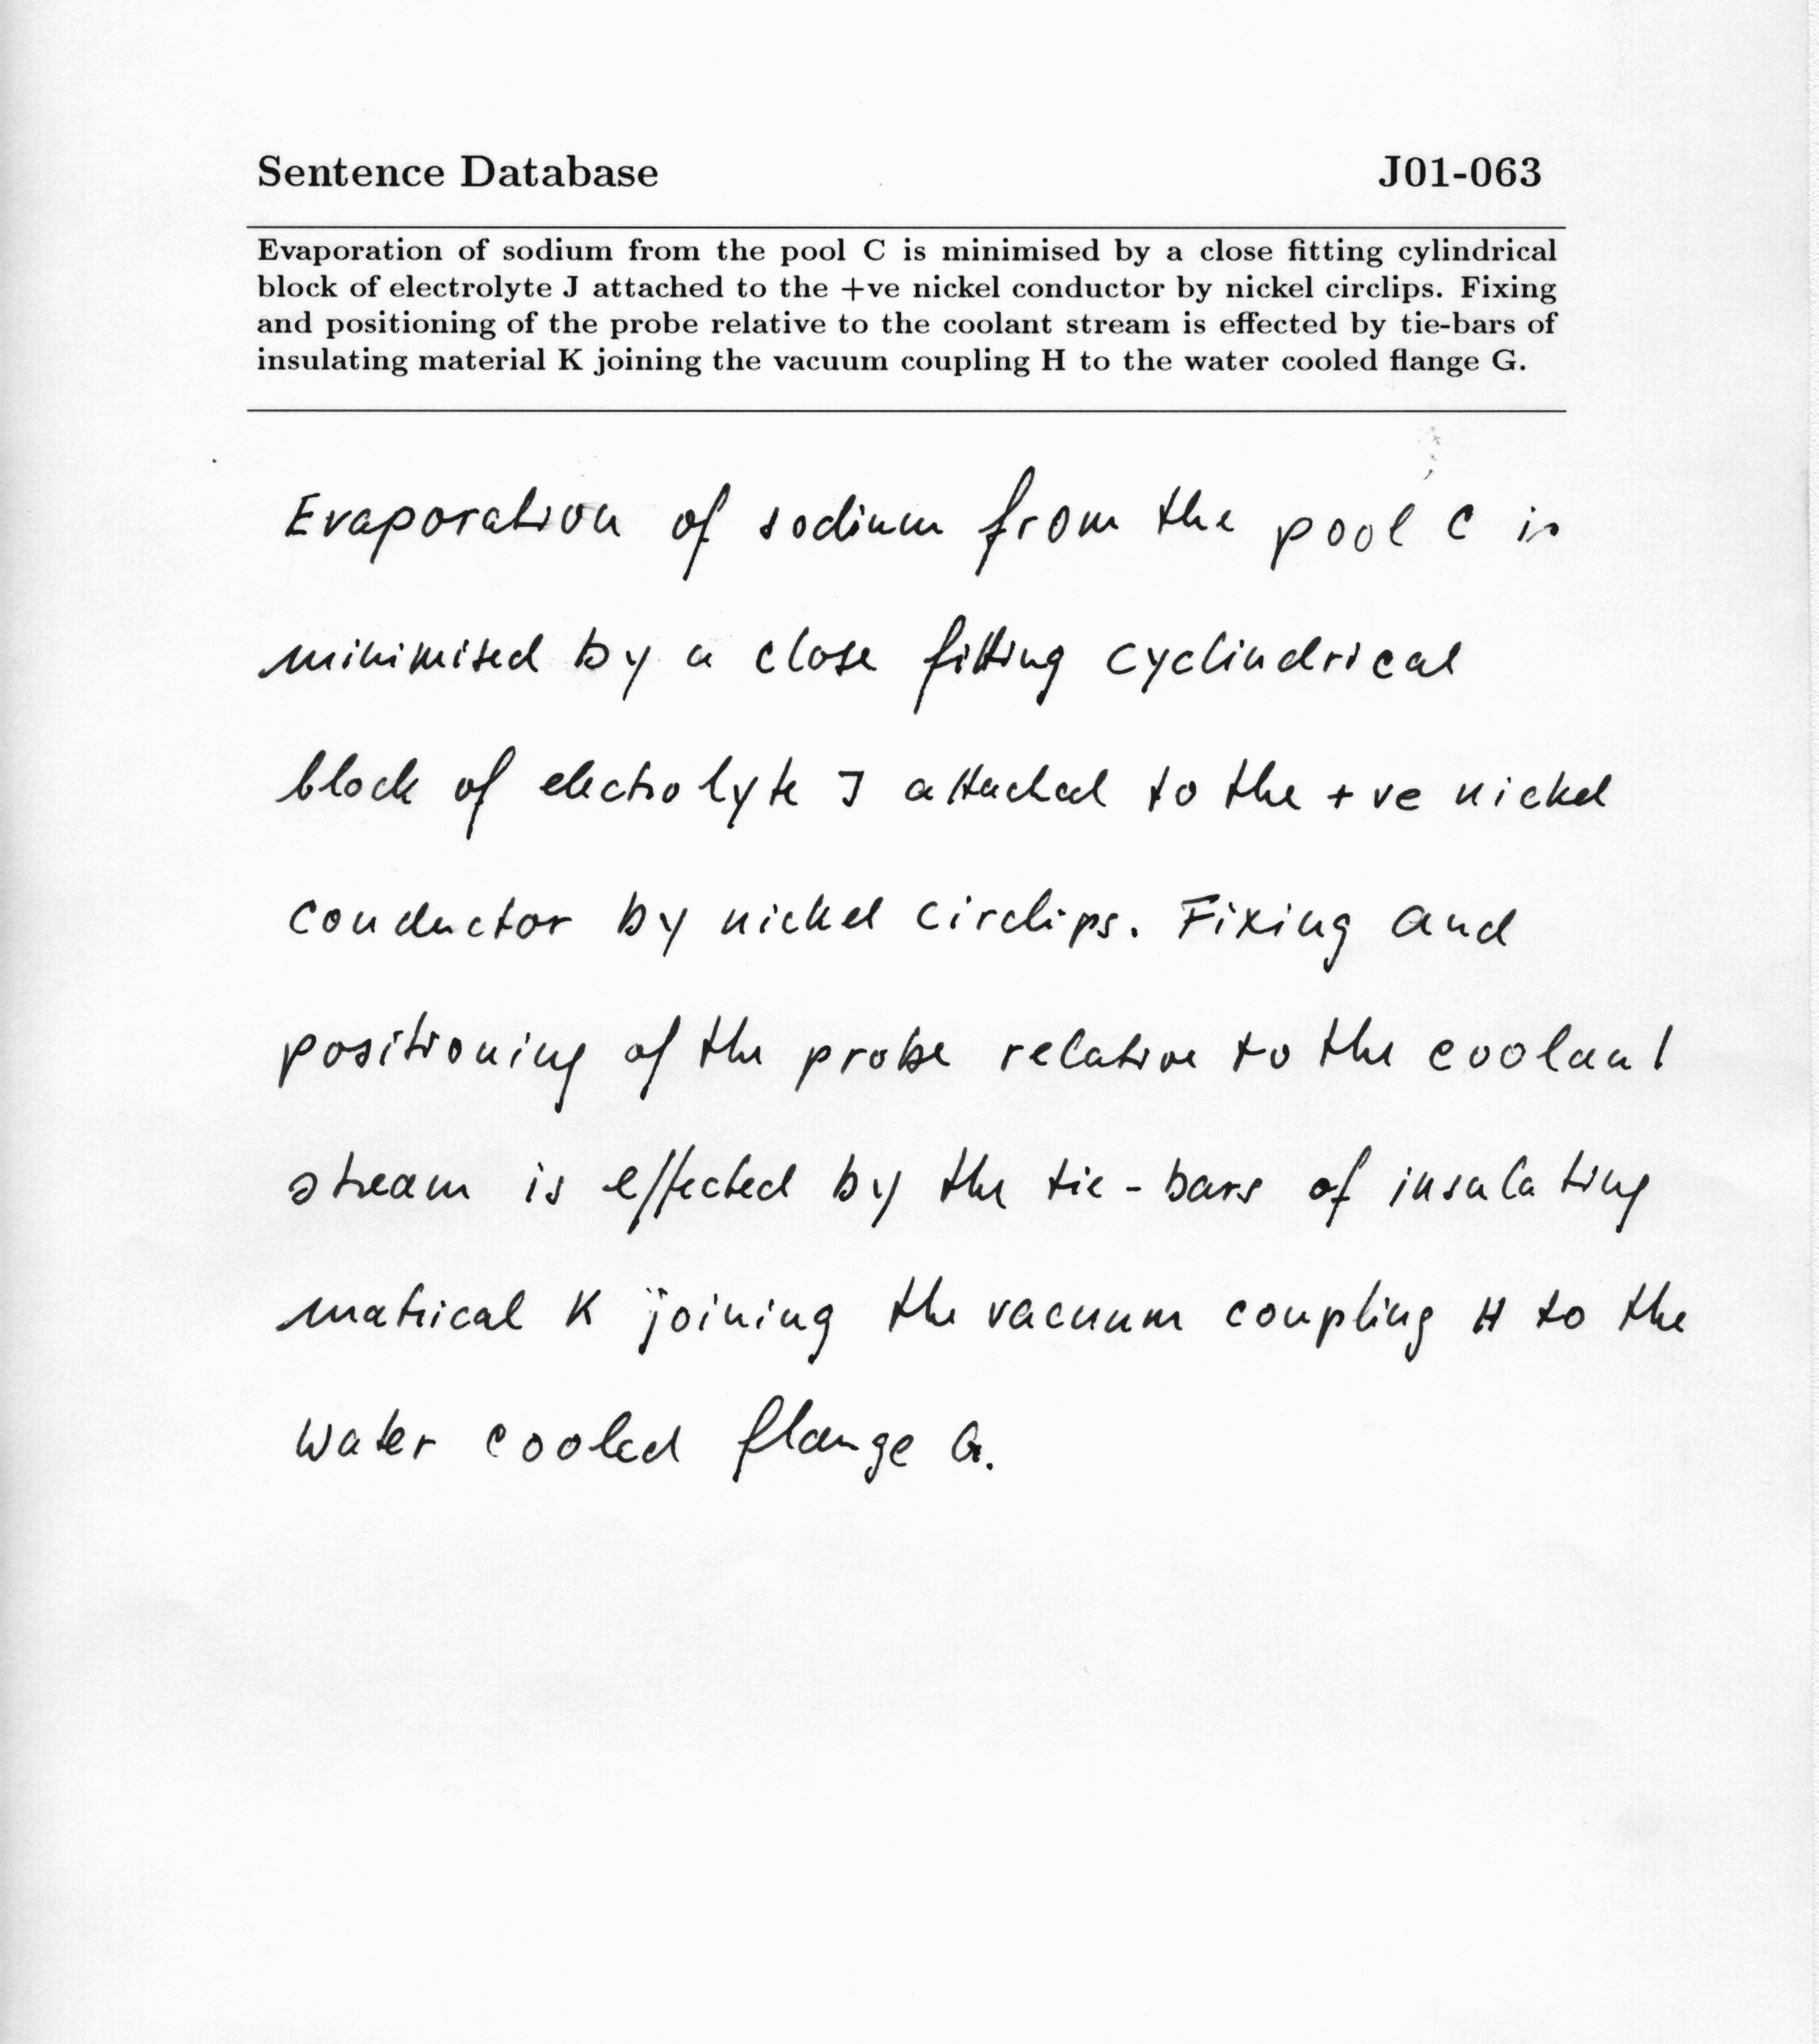 Sentence Database J01-063
Evaporation of sodium from the pool C is minimised by a close fitting cylindrical
block of electrolyte J attached to the +ve nickel conductor by nickel circlips. Fixing
and positioning of the probe relative to the coolant stream is effected by tie-bars of
insulating material K joining the vacuum coupling H to the water cooled flange G.
Evaporation of sodium from the pool C is
minimised by a close fitting cyclindrical
block of electrolyte J attached to the +ve nickel
conductor by nickel circlips. Fixing and
positioning of the probe relative to the coolant
stream is effected by the tie-bars of insulating
matrical K joining the vacuum coupling H to the
water cooled flange G.